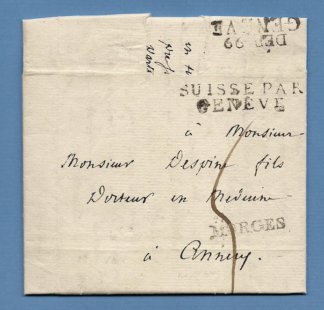 DEP. 99
GENÈVE
SUISSE PAR
GENÈVE
à Monsieur
Monsieur Despine fils
Docteur en Médecine
MORGES
à Annecy.